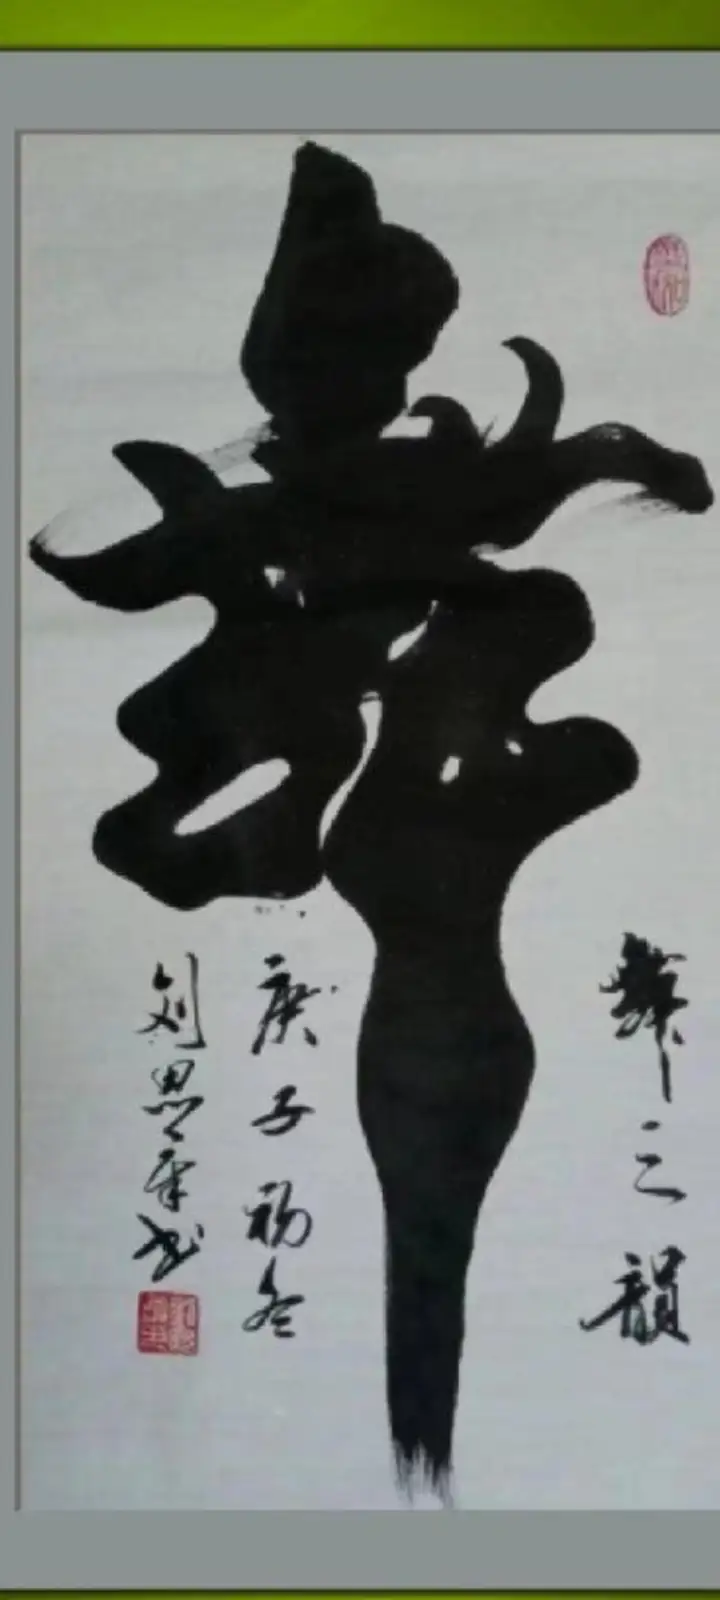 舞之韻
舞
庚子初冬
刘思军书